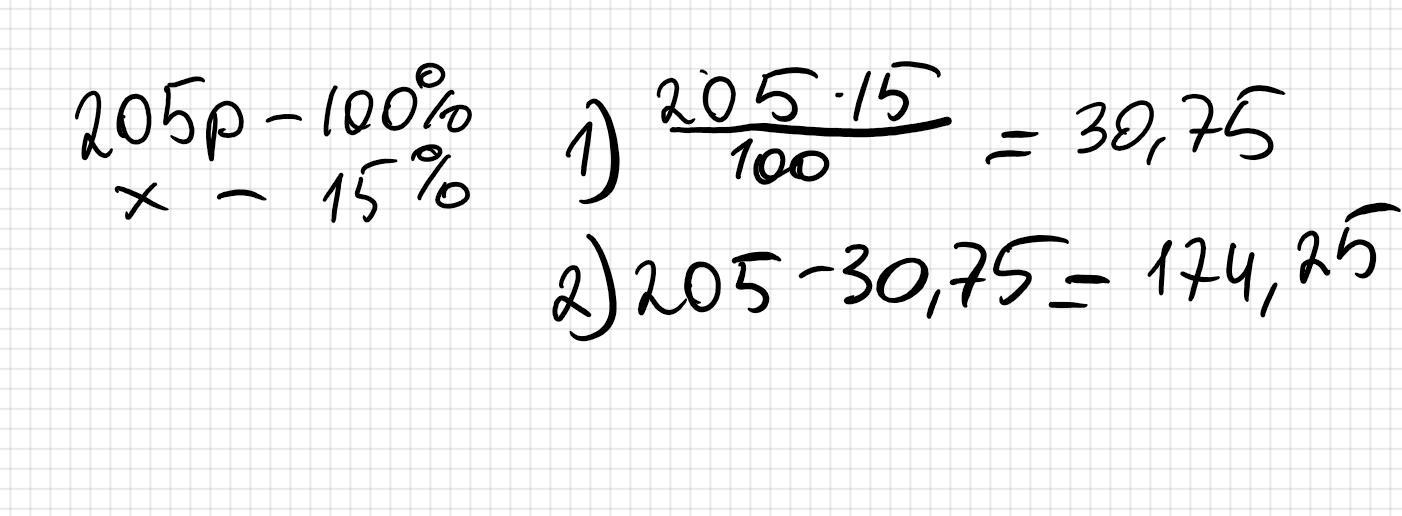 205р – 100%
x – 15%
1) 205 · 15 / 100 = 30,75
2) 205 – 30,75 = 174,25